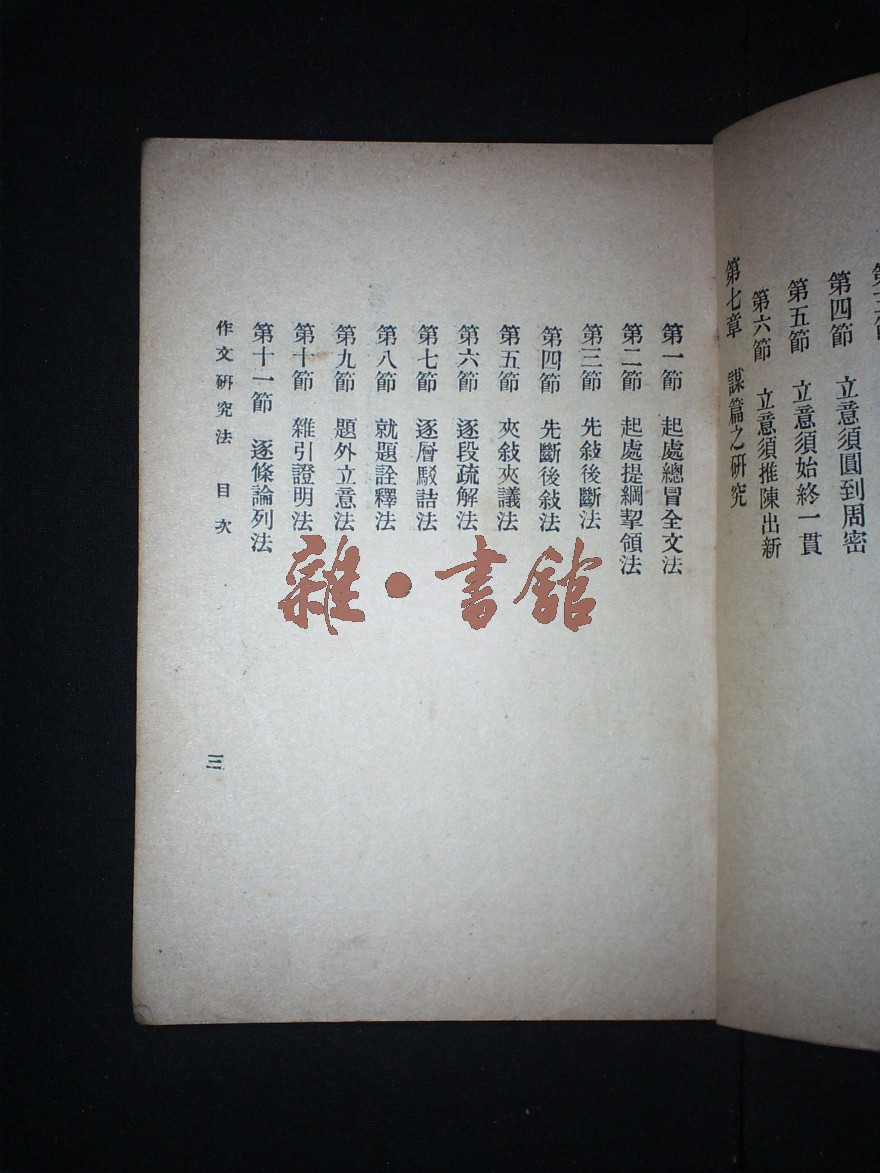 第四節　立意須圓到周密
第五節　立意須始終一貫
第六節　立意須推陳出新
第七章　謀篇之研究
第一節　起處總冒全文法
第二節　起處提綱挈領法
第三節　先敍後斷法
第四節　先斷後敍法
第五節　夾敍夾議法
第六節　逐段疏解法
第七節　逐層駁詰法
第八節　就題詮釋法
第九節　題外立意法
第十節　雜引證明法
第十一節　逐條論列法
作文硏究法　目次
三
雜·書館